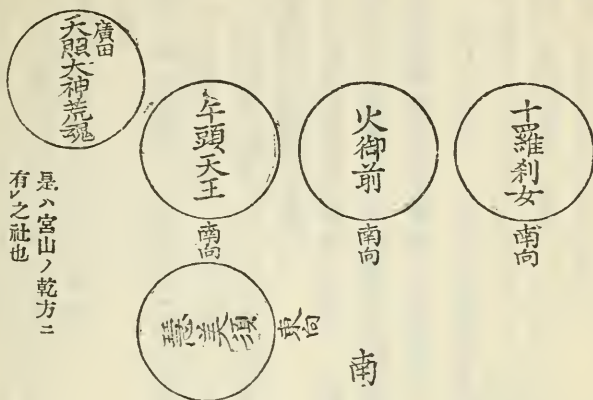 十羅刹女
南向
火御前
南向
牛頭天王
南向
廣田
天照大神荒魂
是ハ宮山ノ乾方ニ
有レ之社也
東向
恵美須
南